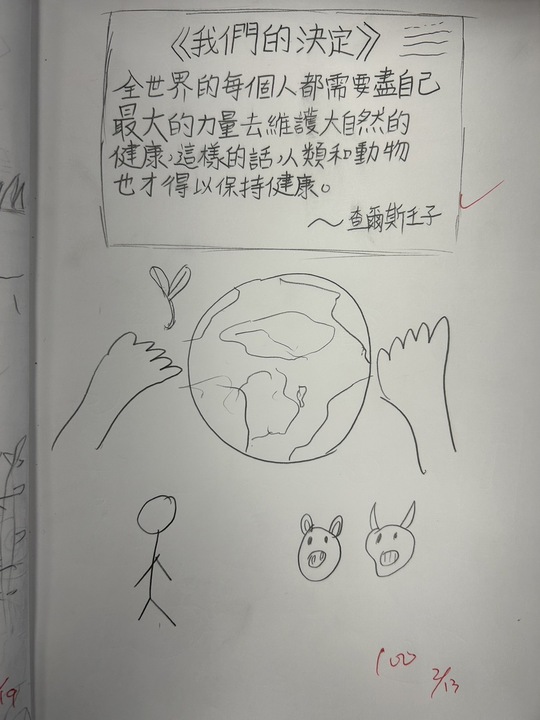 《我們的決定》
全世界的每個人都需要盡自己
最大的力量去維護大自然的
健康,這樣的話,人類和動物
也才得以保持健康。
～查爾斯王子
100
2/13
19